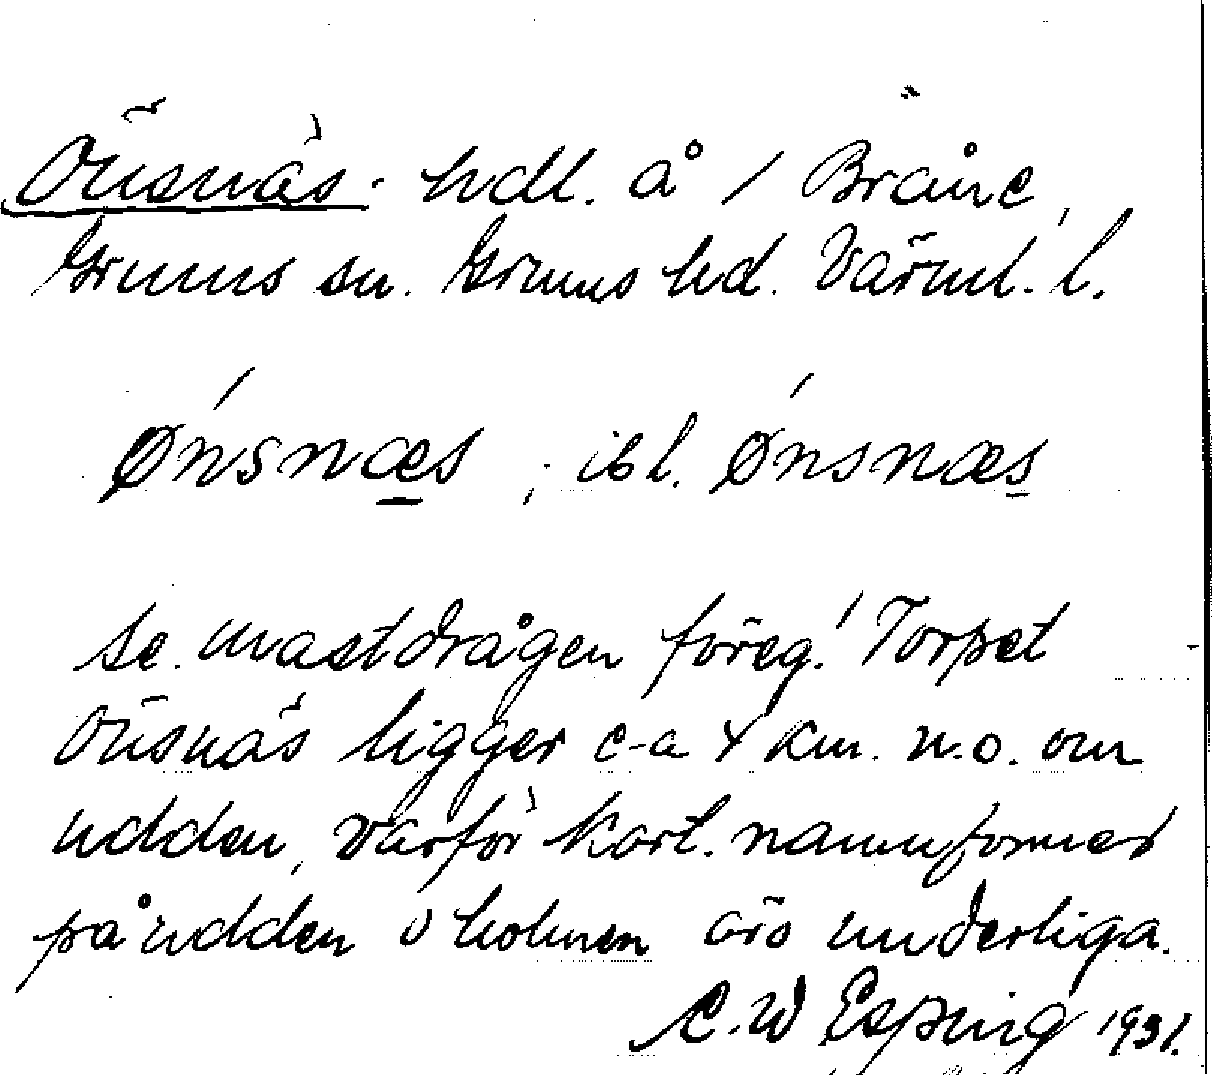 Önsnäs. hdl. å 1 Bråne,
Grums sn. Grums hd. Värml. l.
Ønsnæs, ibl. Ønsnæs
Se. föreg.! Torpet
Önsnäs ligger c-a 4 km. n.o. om
udden, varför kart. namnformer
på udden o holmen äro underliga.
C. W Esping 1931.